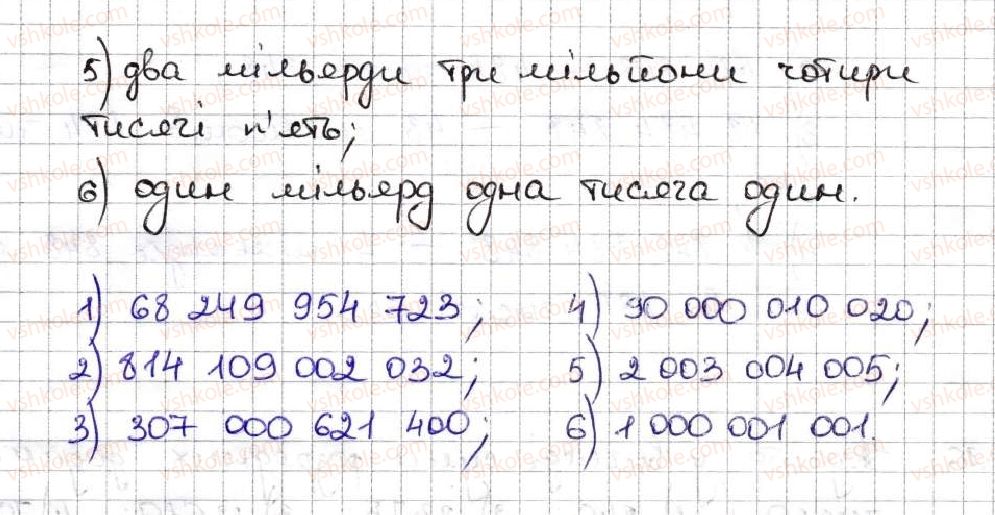 5) два мільярди три мільйони чотири
тисячі п'ять;
6) один мільярд одна тисяча один.
1) 68 249 954 723; 4) 90 000 010 020;
2) 814 109 002 032; 5) 2 003 004 005;
3) 307 000 621 400; 6) 1 000 001 001.